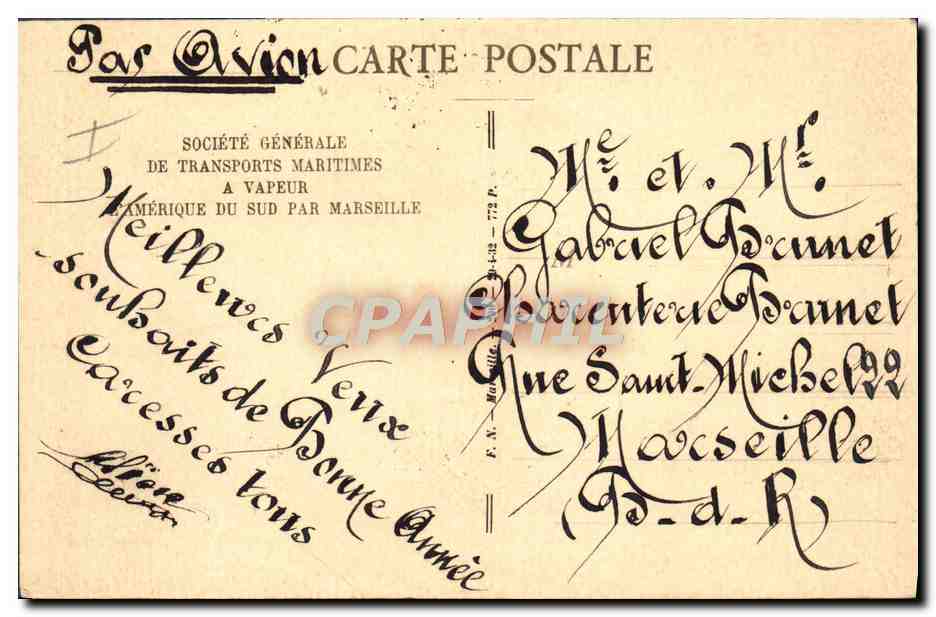 Par Avion CARTE POSTALE
SOCIÉTÉ GÉNÉRALE
DE TRANSPORTS MARITIMES
A VAPEUR
L'AMÉRIQUE DU SUD PAR MARSEILLE
Meilleures Veux
souhaits de Bonne Année
Caresses tous
F. N. — Marseille. 20-4-32 — 772 P.
Me. et. Mr.
Gabriel Brunet
Charcuterie Brunet
Rue Saint-Michel 22
Marseille
B-d-R
CPAPHIL